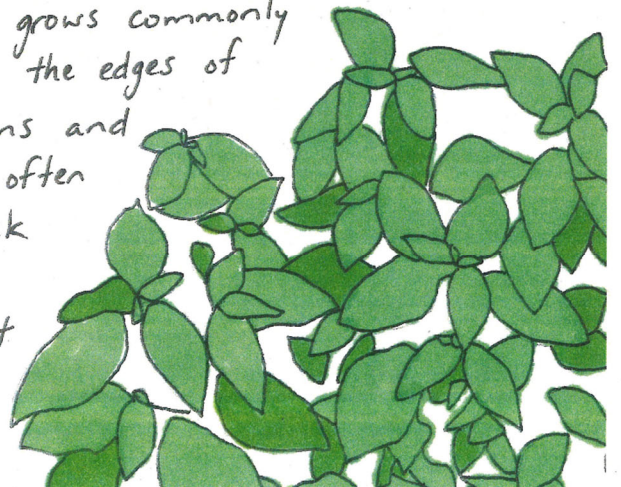 grows commonly
the edges of
ns and
often
k
t